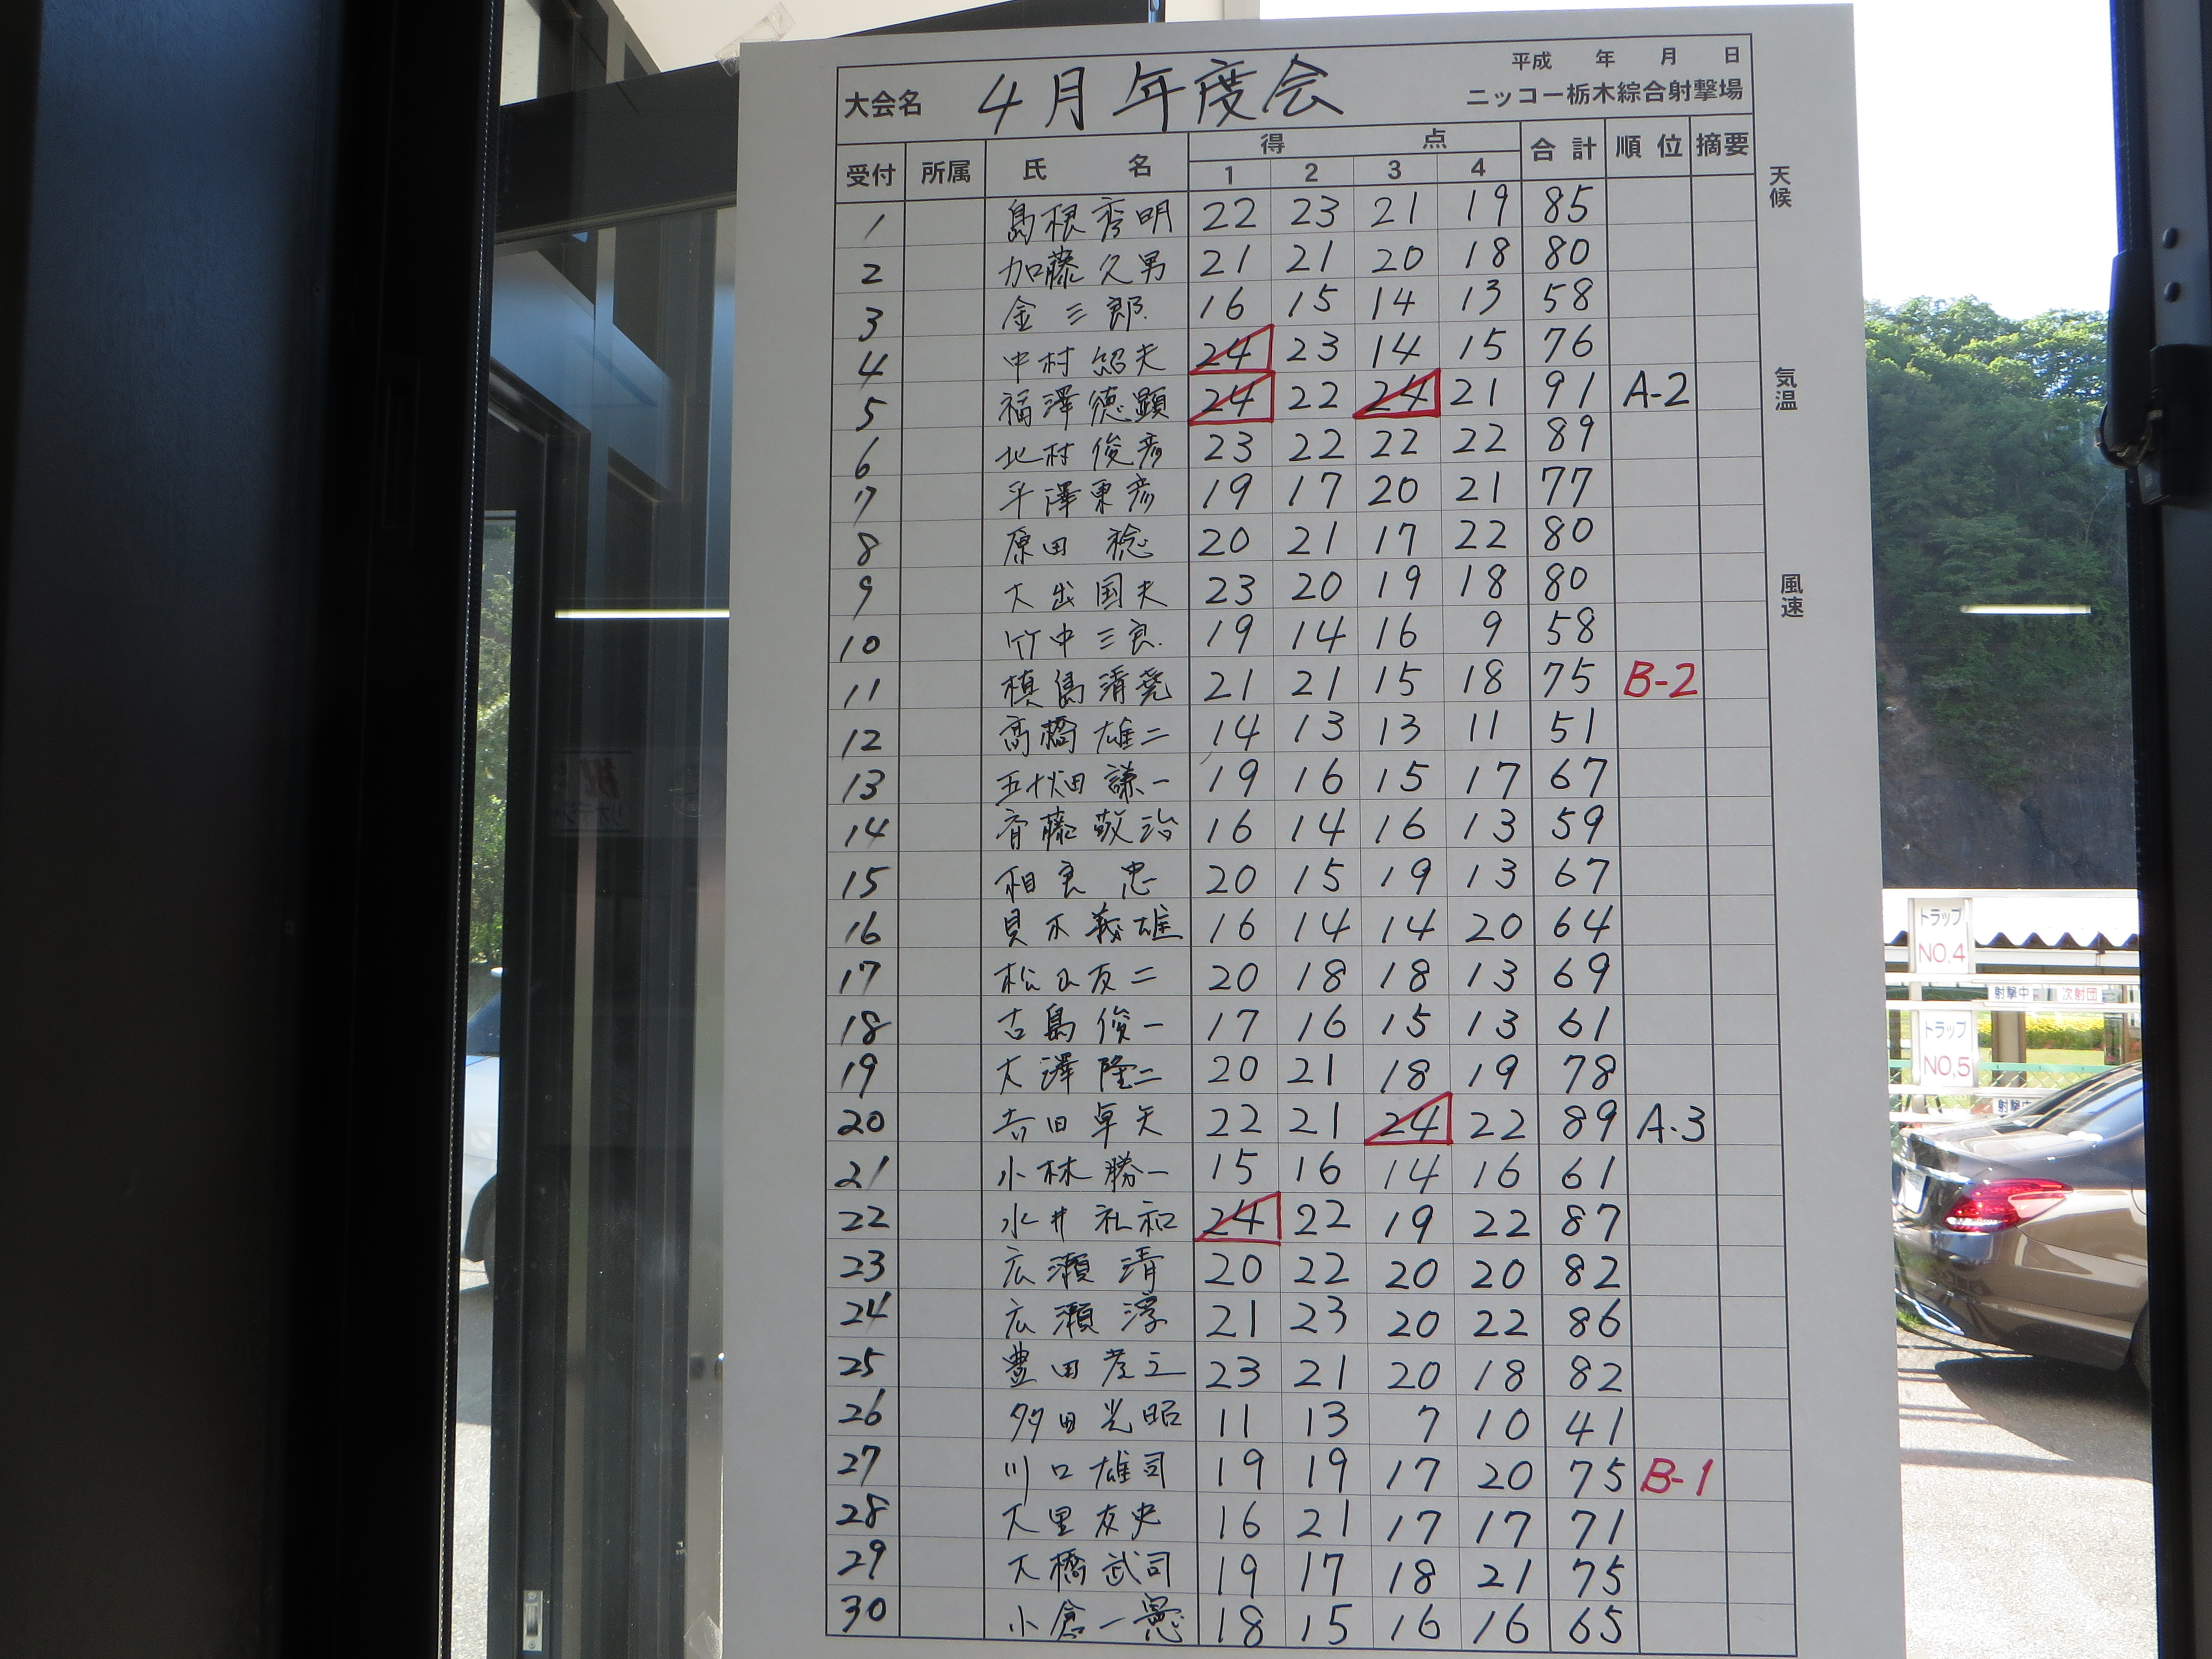 平成 年 月 日
大会名 4月年度会 ニッコー栃木綜合射撃場
受付 所属 氏名 得点 合計 順位 摘要
1 2 3 4
1 島根秀明 22 23 21 19 85
2 加藤久男 21 21 20 18 80
3 金三郎 16 15 14 13 58
4 中村紹夫 24 23 14 15 76
5 福澤徳顕 24 22 24 21 91 A-2
6 北村俊彦 23 22 22 22 89
7 平澤東彦 19 17 20 21 77
8 原田稔 20 21 17 22 80
9 大出国夫 23 20 19 18 80
10 竹中三良 19 14 16 9 58
11 槙島清堯 21 21 15 18 75 B-2
12 高橋雄二 14 13 13 11 51
13 五十畑謙一 19 16 15 17 67
14 斉藤敬治 16 14 16 13 59
15 相良忠 20 15 19 13 67
16 義雄 16 14 14 20 64
17 松山友二 20 18 18 13 69
18 古島俊一 17 16 15 13 61
19 大澤隆二 20 21 18 19 78
20 吉田卓矢 22 21 24 22 89 A-3
21 小林勝一 15 16 14 16 61
22 水井礼和 24 22 19 22 87
23 広瀬清 20 22 20 20 82
24 広瀬淳 21 23 20 22 86
25 豊田孝之 23 21 20 18 82
26 多田光昭 11 13 7 10 41
27 川口雄司 19 19 17 20 75 B-1
28 大里友史 16 21 17 17 71
29 大橋武司 19 17 18 21 75
30 小倉一 18 15 16 16 65
天候
気温
風速
トラップ
NO,4
射撃中 次射団
トラップ
NO,5
射撃中